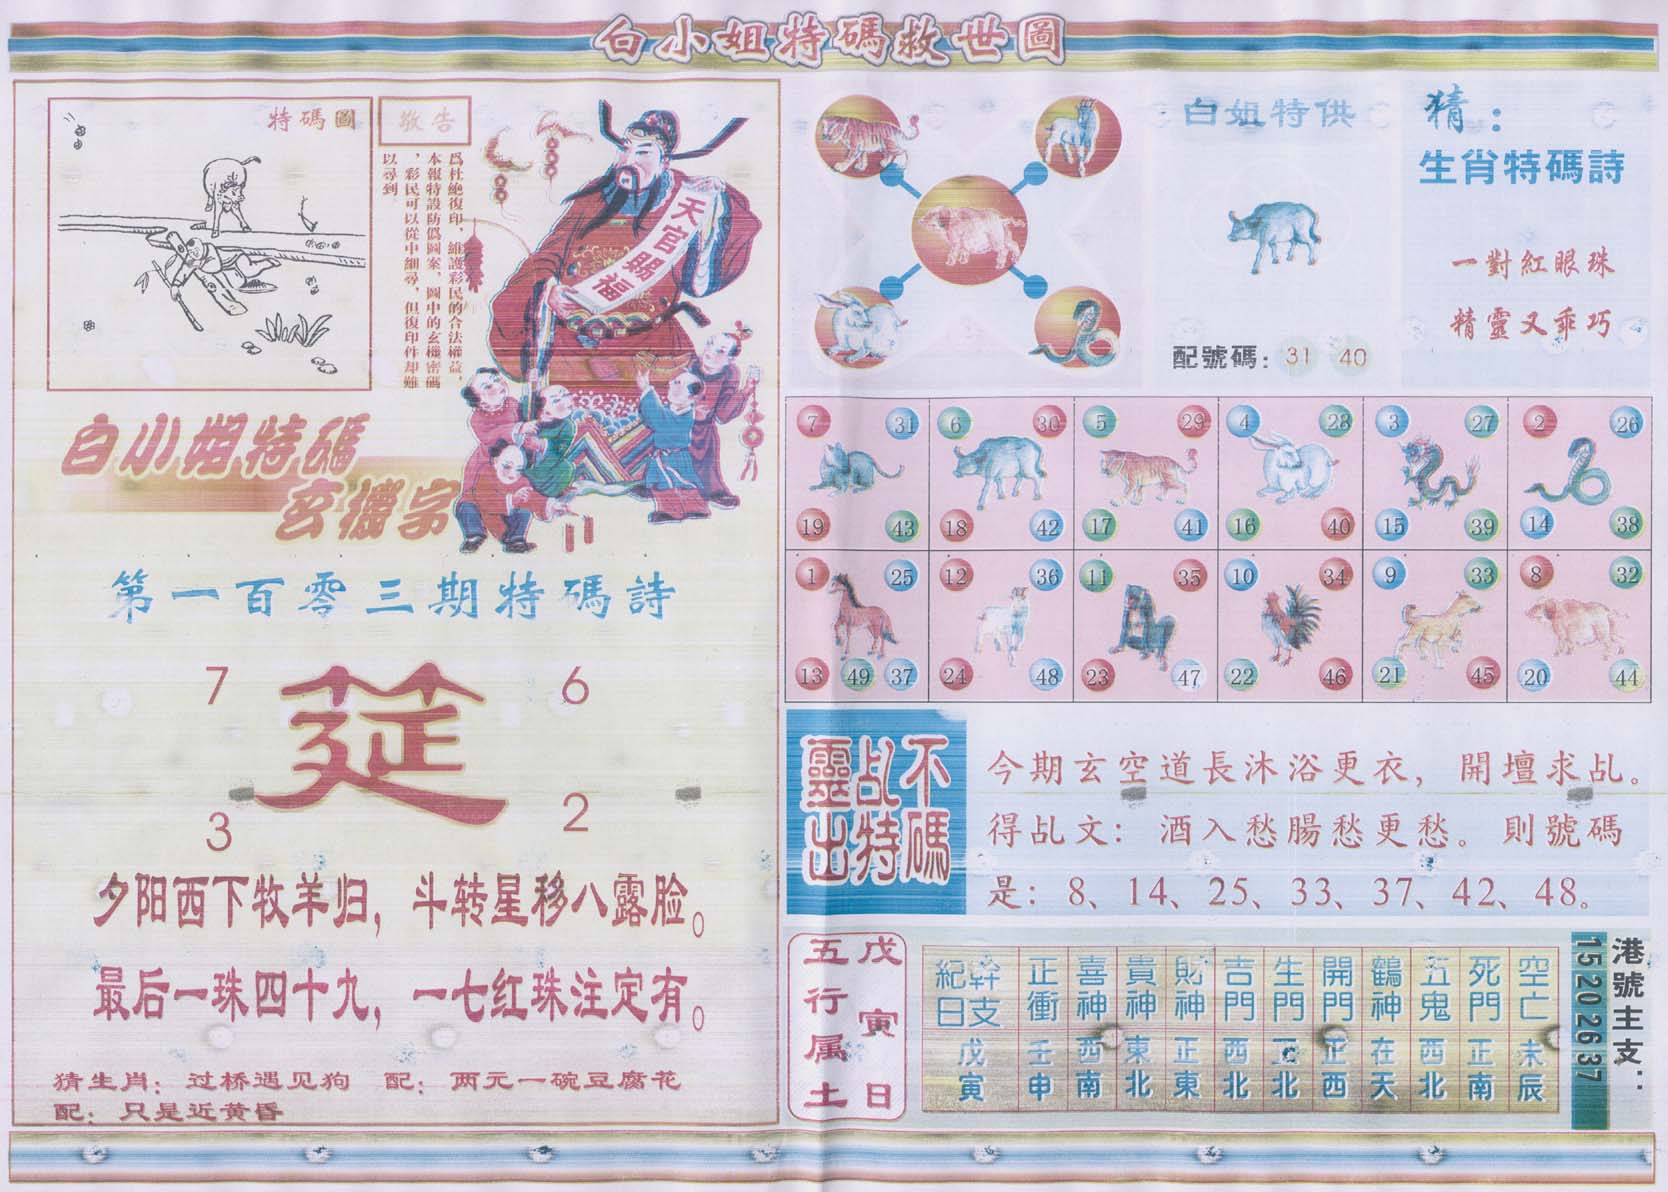 白小姐特碼救世圖
特碼圖
敬告
爲杜絶復印，維護彩民的合法權益，
本報特設防僞圖案，圖中的玄機密碼
，彩民可以從中細尋，但復印件却難
以尋到
天官賜福
白小姐特碼
玄機字
第一百零三期特碼詩
7 6
筵
3 2
夕阳西下牧羊归，斗转星移八露脸。
最后一珠四十九，一七红珠注定有。
猜生肖：过桥遇见狗 配：两元一碗豆腐花
配：只是近黄昏
白姐特供
配號碼：31 40
猜：
生肖特碼詩
一對紅眼珠
精靈又乖巧
7 31 6 30 5 29 4 28 3 27 2 26
19 43 18 42 17 41 16 40 15 39 14 38
1 25 12 36 11 35 10 34 9 33 8 32
13 49 37 24 48 23 47 22 46 21 45 20 44
不碼
乩特
靈出
今期玄空道長沐浴更衣，開壇求乩。
得乩文：酒入愁腸愁更愁。則號碼
是：8、14、25、33、37、42、48。
戊寅日
五行属土
紀日 幹支 正衝 喜神 貴神 財神 吉門 生門 開門 鶴神 五鬼 死門 空亡
戊寅 壬申 西南 東北 正東 西北 正西 在天 西北 正南 未辰
港號主支：
15 20 26 37